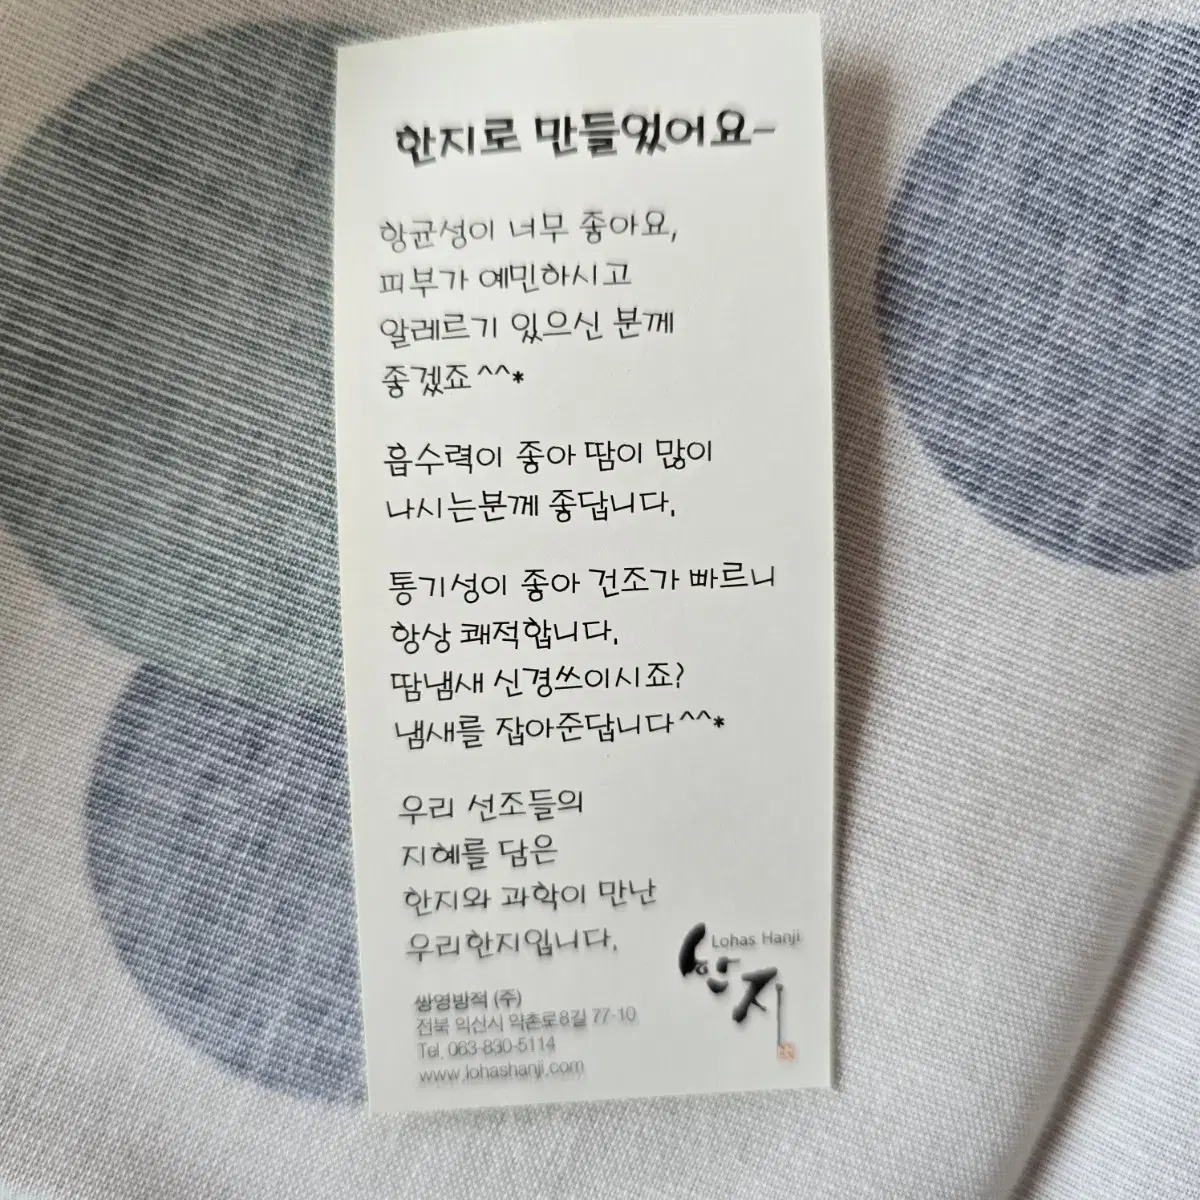 한지로 만들었어요~
항균성이 너무 좋아요,
피부가 예민하시고
알레르기 있으신 분께
좋겠죠^^*
흡수력이 좋아 땀이 많이
나시는분께 좋답니다.
통기성이 좋아 건조가 빠르니
항상 쾌적합니다.
땀냄새 신경쓰이시죠?
냄새를 잡아준답니다^^*
우리 선조들의
지혜를 담은
한지와 과학이 만난
우리한지입니다.
Lohas Hanji
한지
쌍영방적 (주)
전북 익산시 약촌로8길 77-10
Tel. 063-830-5114
www.lohashanji.com